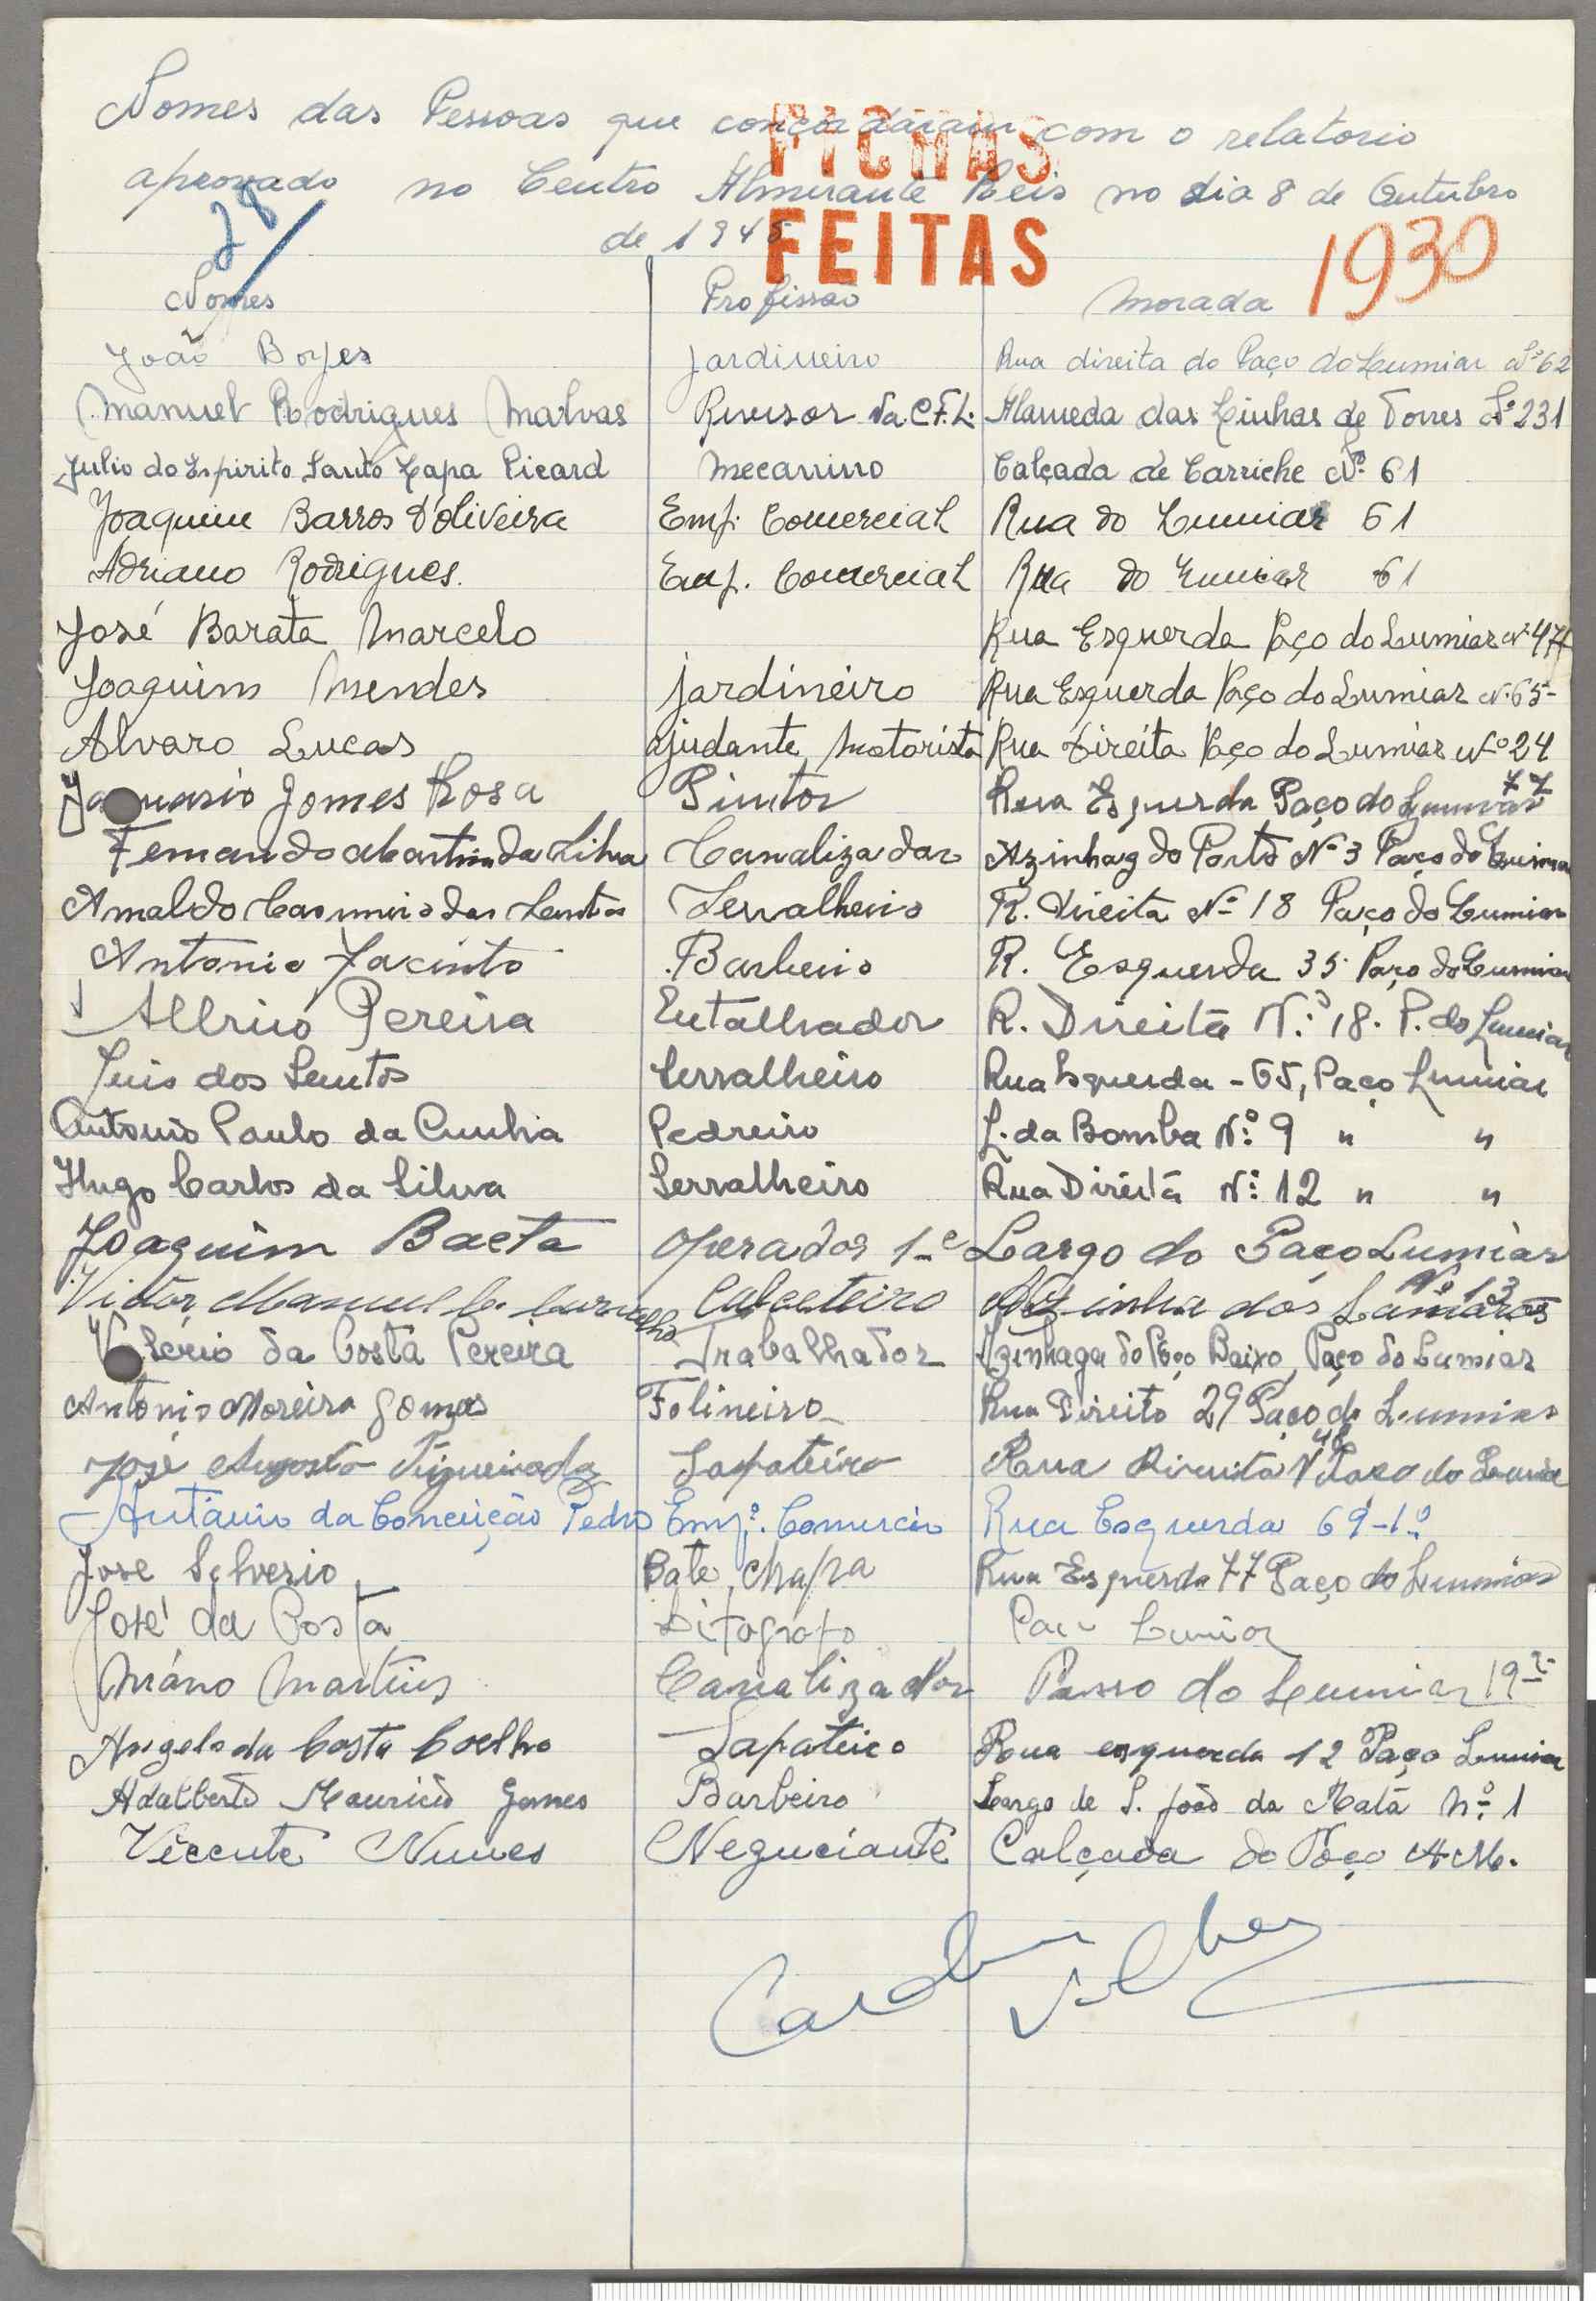 Nomes das Pessoas que concordaram com o relatorio
aprovado no Centro Almirante Reis no dia 8 de Outubro
de 1945
FICHAS
FEITAS
28
1930
Nomes Profissão Morada
João Borjes jardineiro Rua direita do Paço do Lumiar Nº 62
Manuel Rodrigues Malvas Revisor da C.F.L. Alameda das Linhas de Torres Nº 231
Julio do Espirito Santo Capa Picard Mecanino Calçada de Carriche Nº 61
Joaquim Barros D'oliveira Emp. Comercial Rua do Lumiar 61
Adriano Rodrigues. Emp. Comercial Rua do Lumiar 61
José Barata Marcelo Rua Esquerda Paço do Lumiar Nº 47
Joaquim Mendes jardineiro Rua Esquerda Paço do Lumiar Nº 65-
Alvaro Lucas ajudante Motorista Rua direita Paço do Lumiar Nº 24
Gomes Rosa Pintor Rua Esquerda Paço do Lumiar 77
Fernando Martins da Silva Canalizador Azinhag do Porto Nº 3 Paço do Lumiar
Arnaldo Casimiro dos Santos Serralheiro R. Direita Nº 18 Paço do Lumiar
Antonio Jacinto Barbeiro R. Esquerda 35 Paço do Lumiar
Albrico Pereira Entalhador R. Direita N.º 18. P. do Lumiar
Luis dos Santos Serralheiro Rua Esquerda - 65, Paço Lumiar
Antonio Paulo da Cunha Pedreiro L. da Bomba Nº 9 " "
Hugo Carlos da Silva Serralheiro Rua Direita Nº 12 " "
Joaquim Baeta operador 1-ª Largo do Paço Lumiar
Nº 13
Vitor Manuel C. Carvalho Calceteiro Azinha dos Lameiros
da Costa Pereira Trabalhador Azenhaga do Poço Baixo, Paço do Lumiar
Antonio Moreira Gomes Folineiro Rua Direito 29 Paço do Lumiar
José Augosto Figueireda Sapateiro Rua Direita Nº 48 Paço do Lumiar
António da Conceição Pedro Empº. Comercio Rua Esquerda 69-1º
Jose Silverio Bate Chapa Rua Esquerda 77 Paço do Lumiar
José da Costa Litografo Paço Lumiar
Mário Martins Canalizador Passo do Lumiar 19
Angelo da Costa Coelho Sapateiro Rua esquerda 12 Paço Lumiar
Adalberto Mauricio Gomes Barbeiro Largo de S. João da Mata nº 1
Vicente Nunes Neguciante Calçada do Poço A.M.